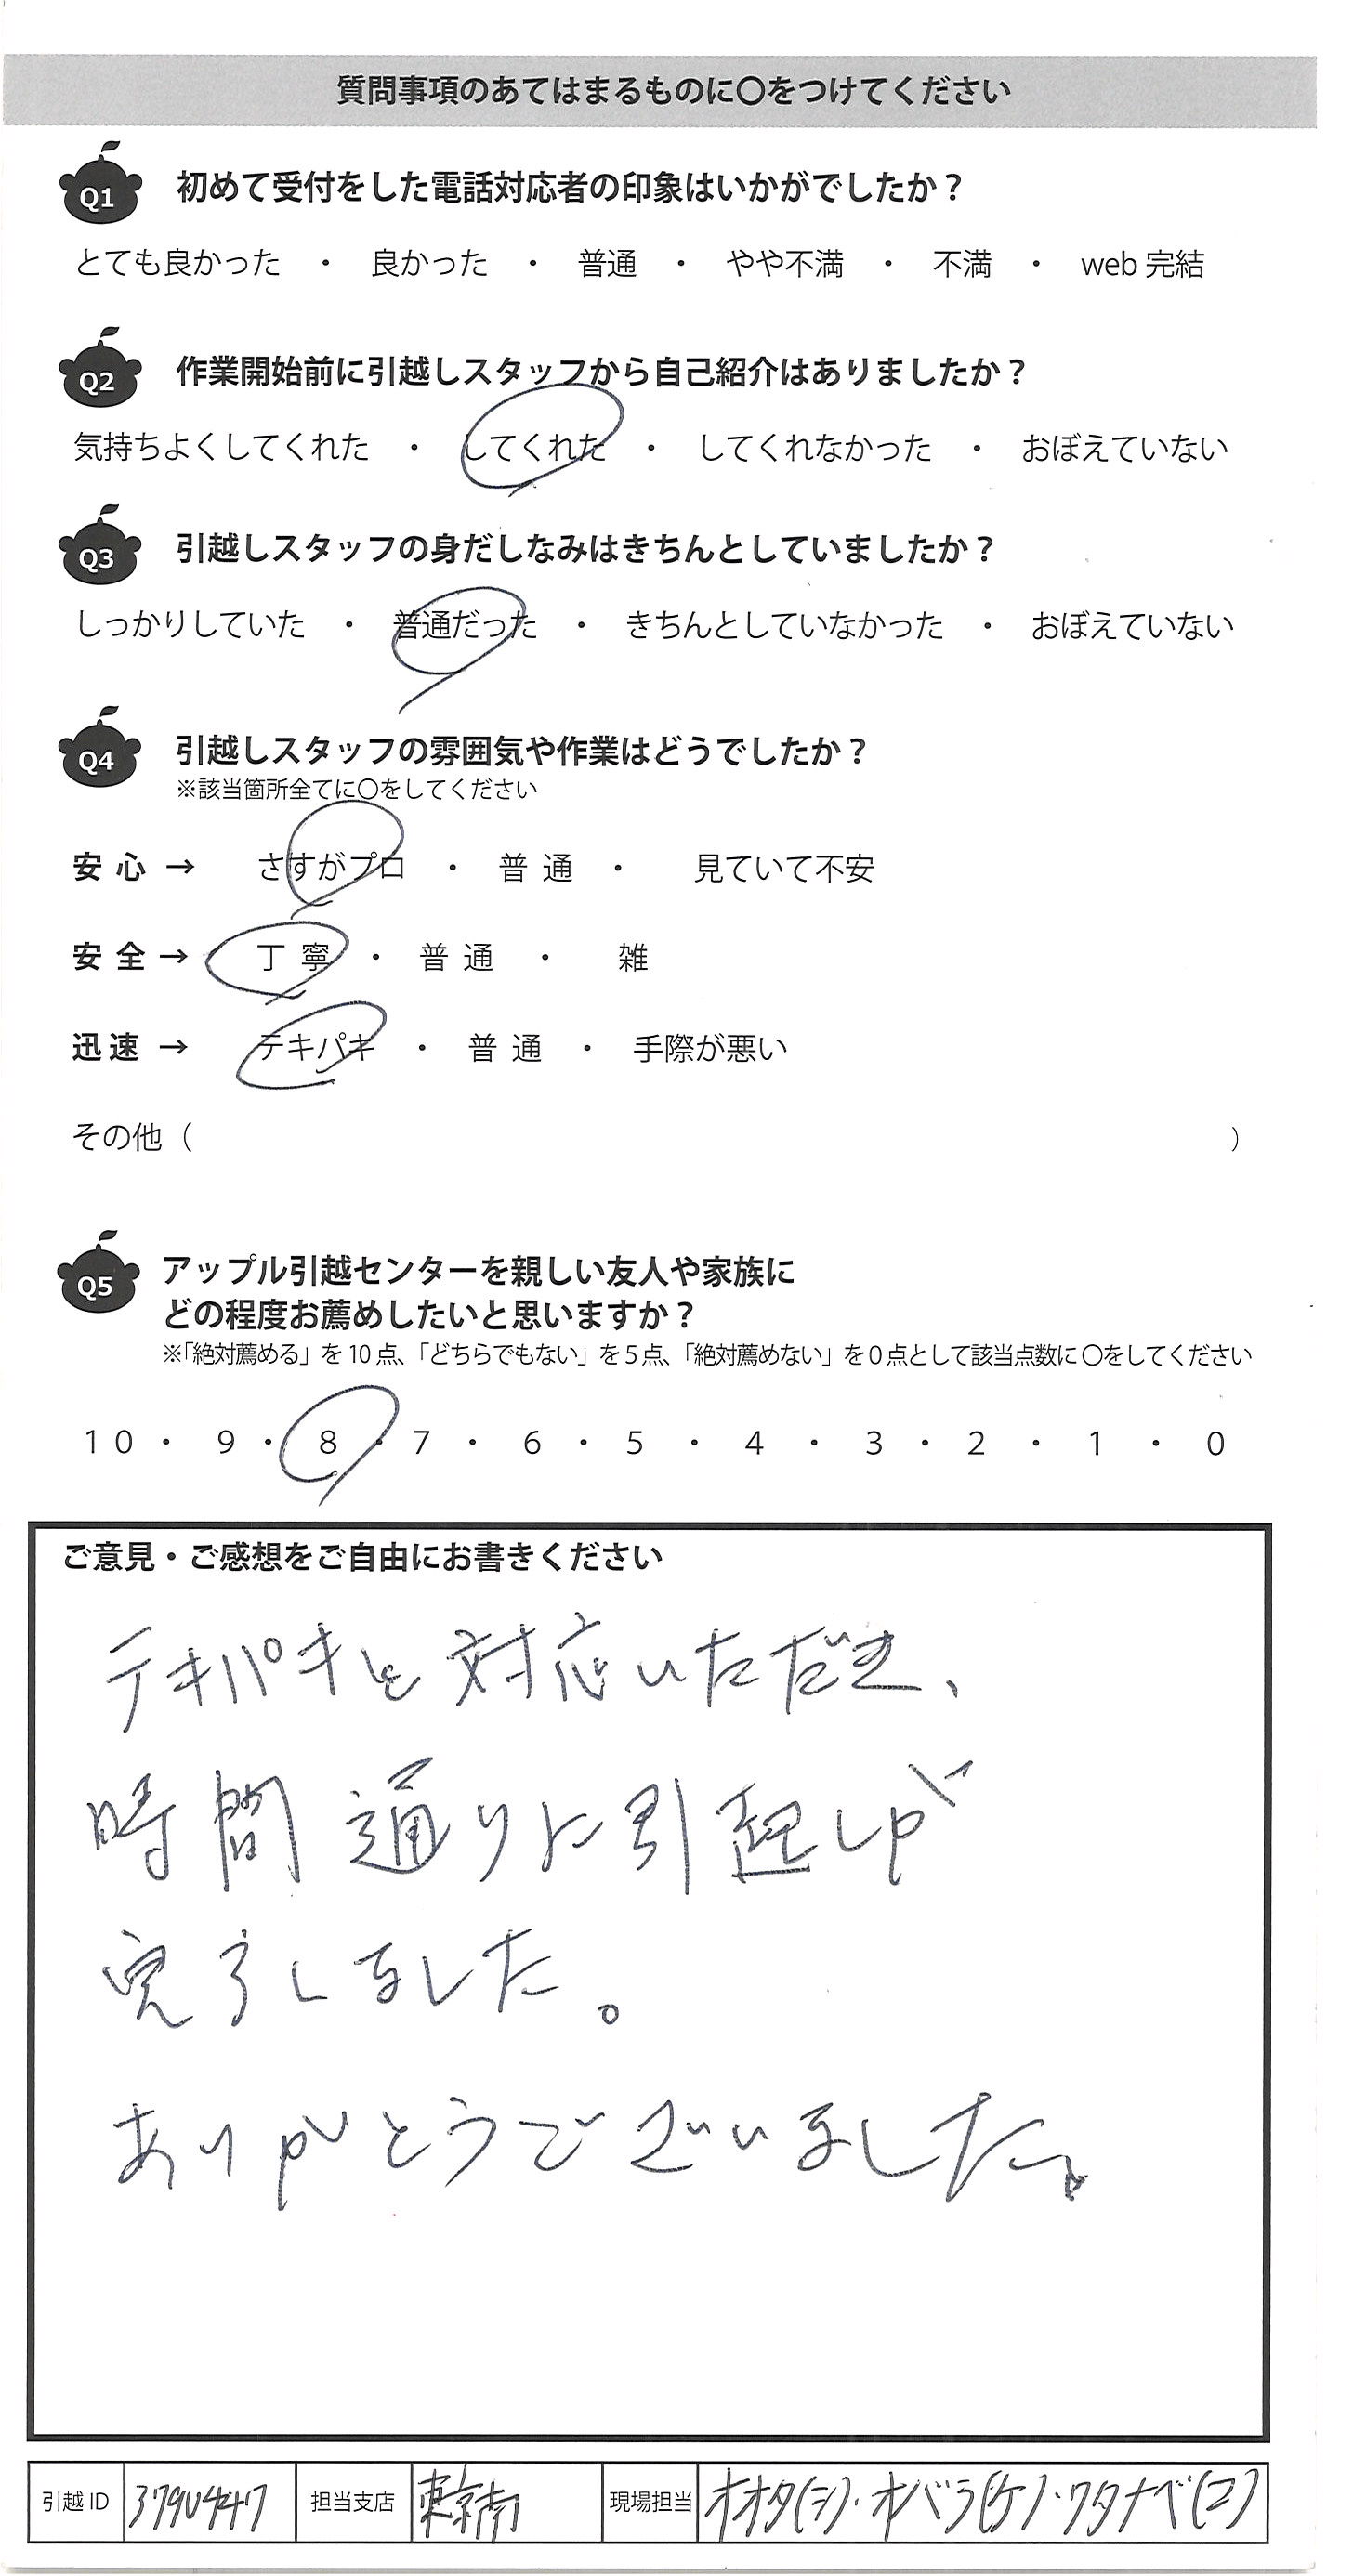 質問事項のあてはまるものに〇をつけてください
Q1 初めて受付をした電話対応者の印象はいかがでしたか？
とても良かった ・ 良かった ・ 普通 ・ やや不満 ・ 不満 ・ web 完結
Q2 作業開始前に引越しスタッフから自己紹介はありましたか？
気持ちよくしてくれた ・ してくれた ・ してくれなかった ・ おぼえていない
Q3 引越しスタッフの身だしなみはきちんとしていましたか？
しっかりしていた ・ 普通だった ・ きちんとしていなかった ・ おぼえていない
Q4 引越しスタッフの雰囲気や作業はどうでしたか？
※該当箇所全てに〇をしてください
安心 → さすがプロ ・ 普通 ・ 見ていて不安
安全 → 丁寧 ・ 普通 ・ 雑
迅速 → テキパキ ・ 普通 ・ 手際が悪い
その他（ ）
Q5 アップル引越センターを親しい友人や家族に
どの程度お薦めしたいと思いますか？
※「絶対薦める」を 10 点、「どちらでもない」を 5 点、「絶対薦めない」を 0 点として該当点数に 〇をしてください
10 ・ 9 ・ 8 ・ 7 ・ 6 ・ 5 ・ 4 ・ 3 ・ 2 ・ 1 ・ 0
ご意見・ご感想をご自由にお書きください
テキパキと対応いただき、
時間通りに引越しが
完了しました。
ありがとうございました。
引越 ID 担当支店 東京南 現場担当 オオタ(シ)・オバラ(ケ)・ワタナベ(コ)